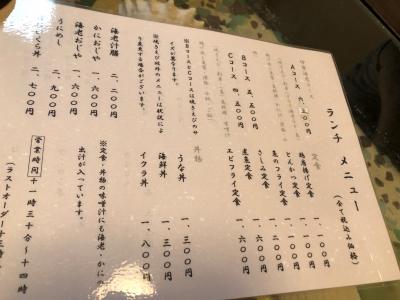 ランチ メニュー
（全て税込み価格）
定食
鶏唐揚げ定食 一、一〇〇円
とんかつ定食 一、一〇〇円
魚のフライ定食 一、一〇〇円
さしみ定食 一、二〇〇円
煮魚定食 一、六〇〇円
エビフライ定食 一、六〇〇円
Aコース 六、五〇〇円
Bコース 五、五〇〇円
Cコース 四、五〇〇円
※BコースとCコースは焼きえびのサイズが異なります。
※焼きえび以外のメニューは状況により変更する場合がございます。
丼物
うな丼 一、三〇〇円
海鮮丼 一、三〇〇円
イクラ丼 一、八〇〇円
海老汁膳 二、二〇〇円
かにおじや 一、六〇〇円
海老おじや 一、六〇〇円
うにめし 二、九〇〇円
くら丼 二、七〇〇円
※定食・丼物の味噌汁にも海老・かにの出汁が入っています。
営業時間 十一時三十分～十四時
（ラストオーダー十三時